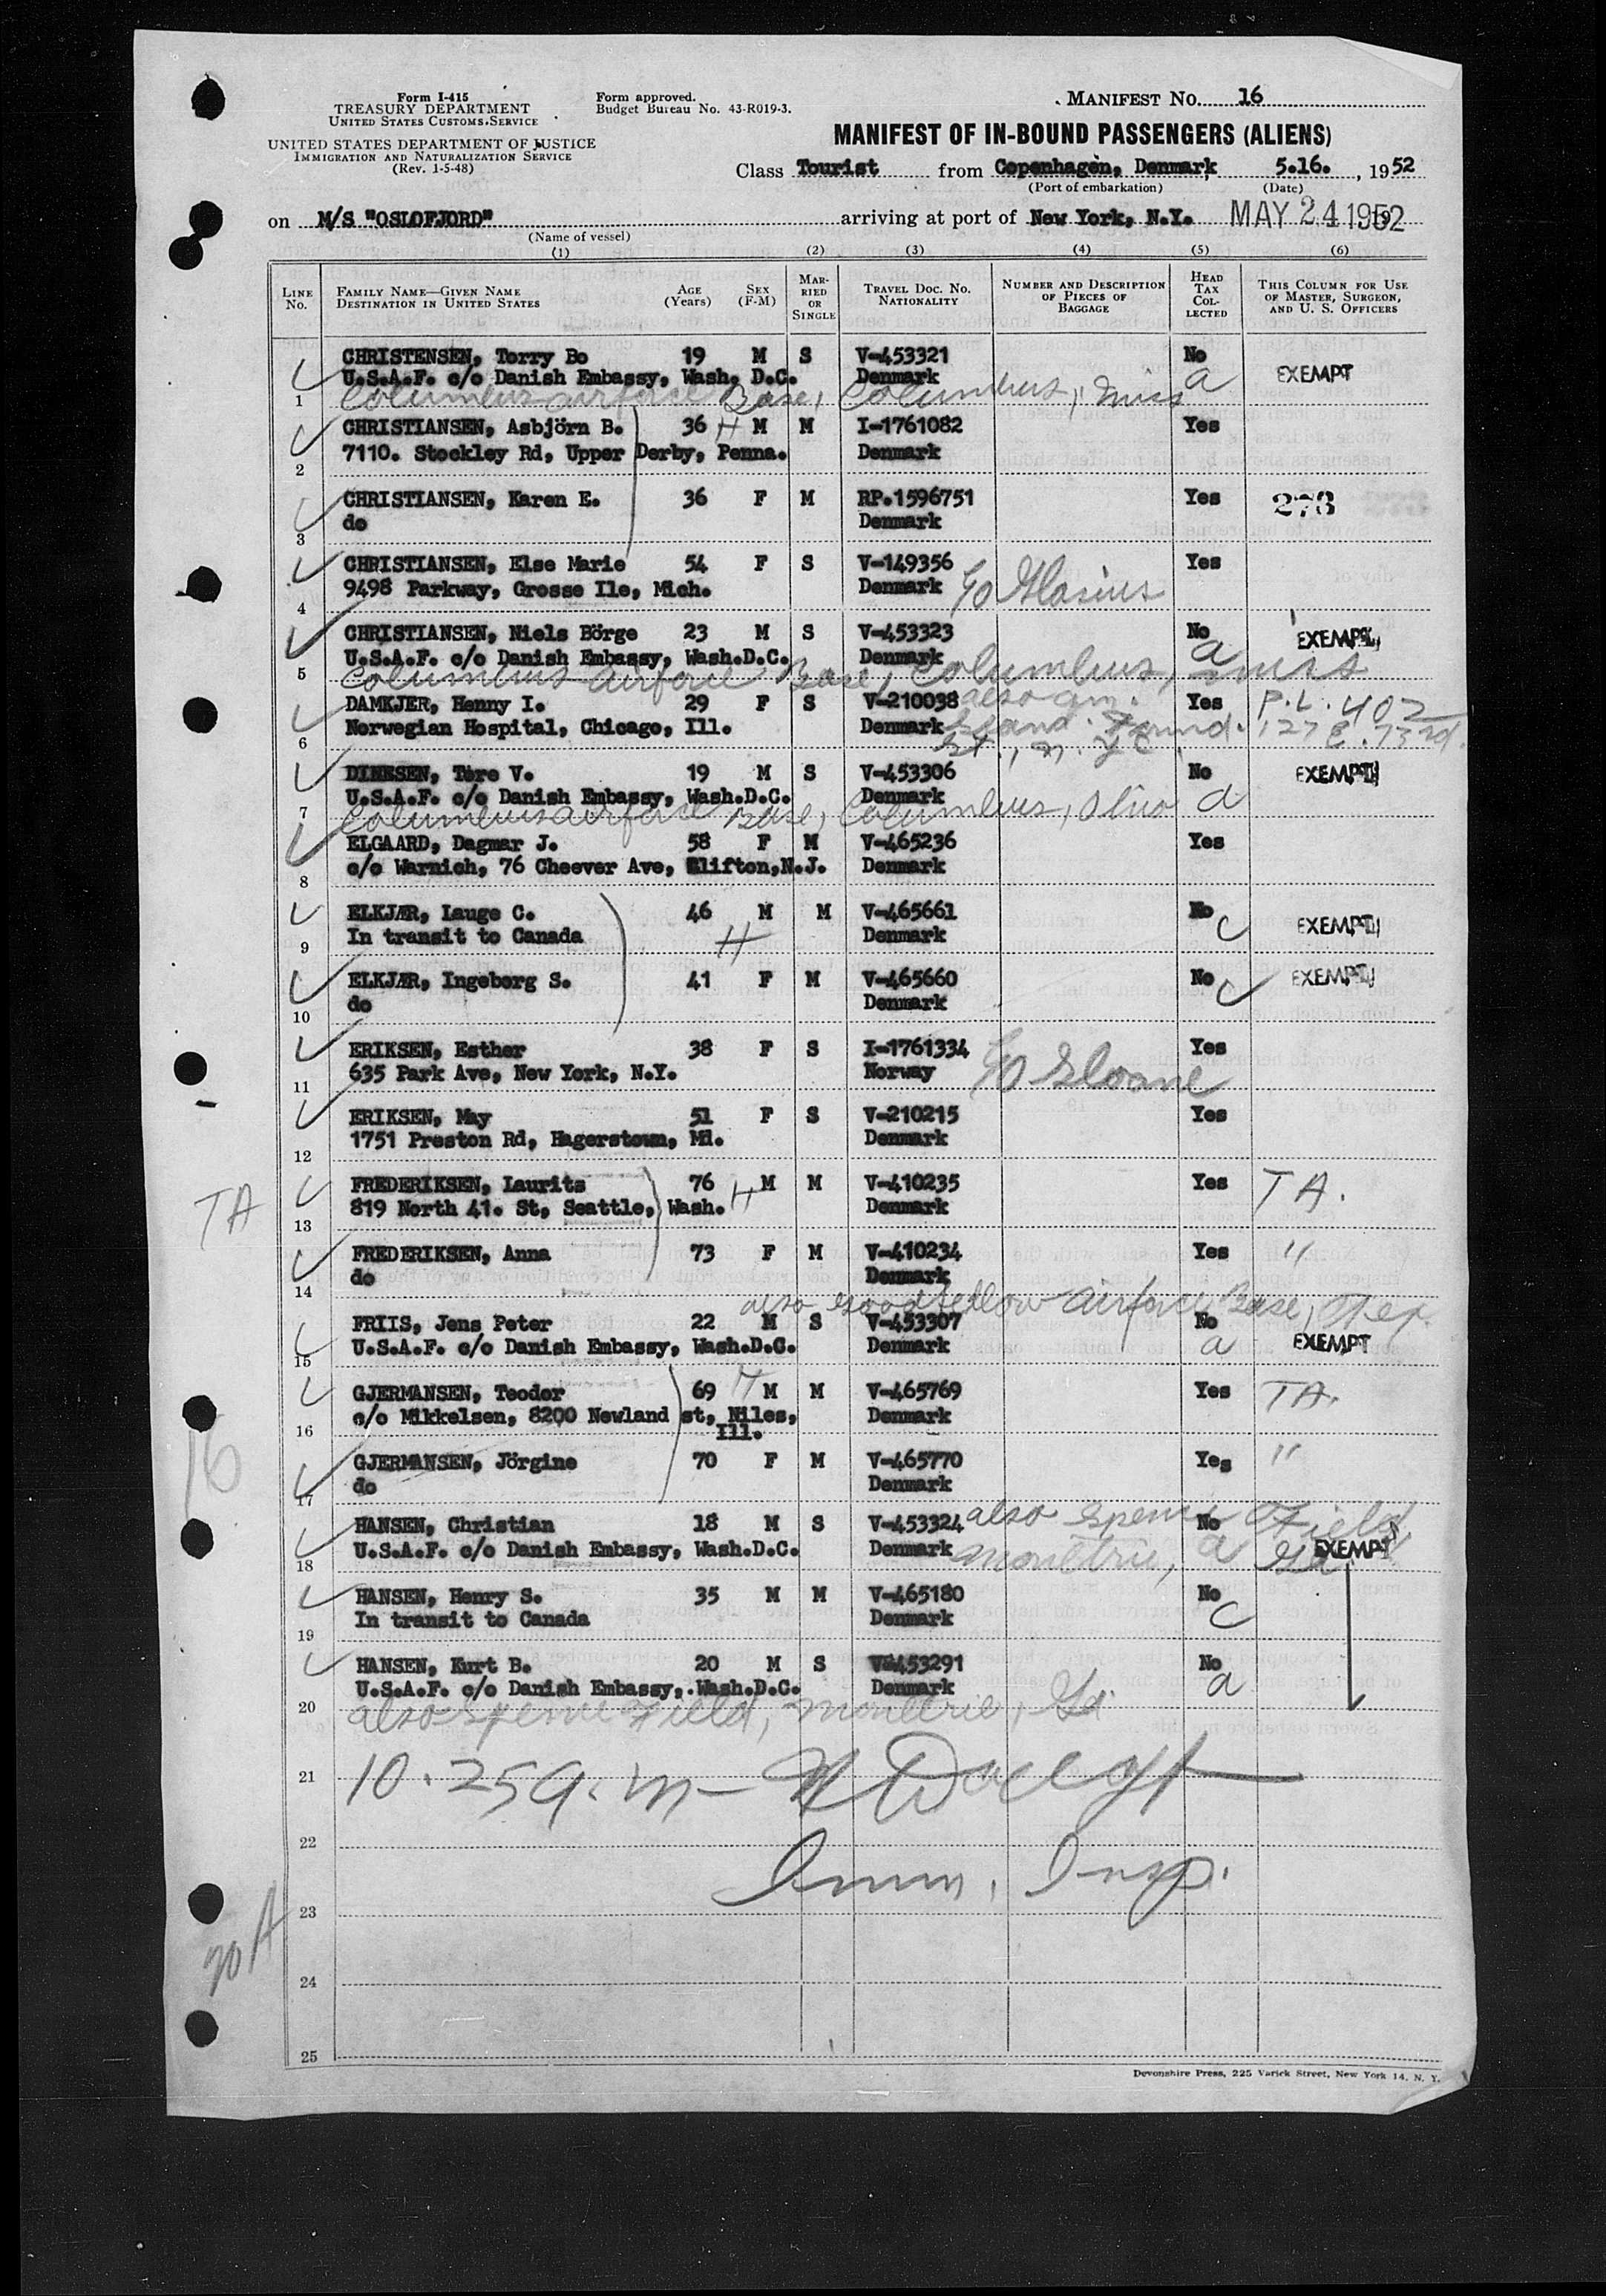 Form I-415
TREASURY DEPARTMENT
UNITED STATES CUSTOMS SERVICE
UNITED STATES DEPARTMENT OF JUSTICE
IMMIGRATION AND NATURALIZATION SERVICE
(Rev. 1-5-48)
Form approved.
Budget Bureau No. 43-R019-3.
MANIFEST NO. 16
MANIFEST OF IN-BOUND PASSENGERS (ALIENS)
Class Tourist from Copenhagen, Denmark 5.16. , 1952
(Port of embarkation) (Date)
on M/S "OSLOFJORD" arriving at port of New York, N.Y. MAY 24 1952
(Name of vessel)
(1) (2) (3) (4) (5) (6)
LINE NO. FAMILY NAME—GIVEN NAME DESTINATION IN UNITED STATES AGE (Years) SEX (F-M) MARRIED OR SINGLE TRAVEL DOC. NO. NATIONALITY NUMBER AND DESCRIPTION OF PIECES OF BAGGAGE HEAD TAX COLLECTED THIS COLUMN FOR USE OF MASTER, SURGEON, AND U. S. OFFICERS
CHRISTENSEN, Torry Bo 19 M S V-453321 No
U.S.A.F. c/o Danish Embassy, Wash. D.C. Denmark a EXEMPT
1 Columbus airforce Base, Columbus, Miss
CHRISTIANSEN, Asbjörn B. 36 H M M I-1761082 Yes
7110. Stockley Rd, Upper Derby, Penna. Denmark
2
CHRISTIANSEN, Karen E. 36 F M RP.1596751 Yes 273
do Denmark
3
CHRISTIANSEN, Else Marie 54 F S V-149356 Yes
9498 Parkway, Grosse Ile, Mich. Denmark c/o Glasius
4
CHRISTIANSEN, Niels Börge 23 M S V-453323 No EXEMPT
U.S.A.F. c/o Danish Embassy, Wash.D.C. Denmark a
5 Columbus airforce Base, Columbus, Miss
DAMKJER, Henny I. 29 F S V-210038 also am. Yes P.L. 402
Norwegian Hospital, Chicago, Ill. Denmark Scand. Found. 127 E. 73rd.
6 St., N.Y.C.
DINESEN, Tøre V. 19 M S V-453306 No EXEMPT
U.S.A.F. c/o Danish Embassy, Wash.D.C. Denmark a
7 Columbus airforce Base, Columbus, Ohio
ELGAARD, Dagmar J. 58 F M V-465236 Yes
c/o Warnich, 76 Cheever Ave, Clifton,N.J. Denmark
8
ELKJÆR, Lauge C. 46 M M V-465661 No
In transit to Canada H Denmark c EXEMPT
9
ELKJÆR, Ingeborg S. 41 F M V-465660 No c EXEMPT
do Denmark
10
ERIKSEN, Esther 38 F S I-1761334 Yes
635 Park Ave, New York, N.Y. Norway c/o Sloane
11
ERIKSEN, May 51 F S V-210215 Yes
1751 Preston Rd, Hagerstown, Md. Denmark
12
FREDERIKSEN, Laurits 76 H M M V-410235 Yes TA.
819 North 41. St, Seattle, Wash. Denmark
TA
13
FREDERIKSEN, Anna 73 F M V-410234 Yes "
do Denmark
14 also Goodfellow airforce Base, Tex.
FRIIS, Jens Peter 22 M S V-453307 No
U.S.A.F. c/o Danish Embassy, Wash.D.C. Denmark a EXEMPT
15
GJERMANSEN, Teodor 69 H M M V-465769 Yes TA.
c/o Mikkelsen, 8200 Newland st, Niles, Denmark
16 Ill.
GJERMANSEN, Jörgine 70 F M V-465770 Yes "
do Denmark
16
17
HANSEN, Christian 18 M S V-453324 also Spence No Field,
U.S.A.F. c/o Danish Embassy, Wash.D.C. Denmark Moultrie, a Ga EXEMPT
18
HANSEN, Henry S. 35 M M V-465180 No
In transit to Canada Denmark c
19
HANSEN, Kurt B. 20 M S V-453291 No
U.S.A.F. c/o Danish Embassy, Wash.D.C. Denmark a
20 also Spence Field, Moultrie, Ga.
21 10.25 a.m
22
Imm. Insp.
23
20A
24
25
Devonshire Press, 225 Varick Street, New York 14, N. Y.